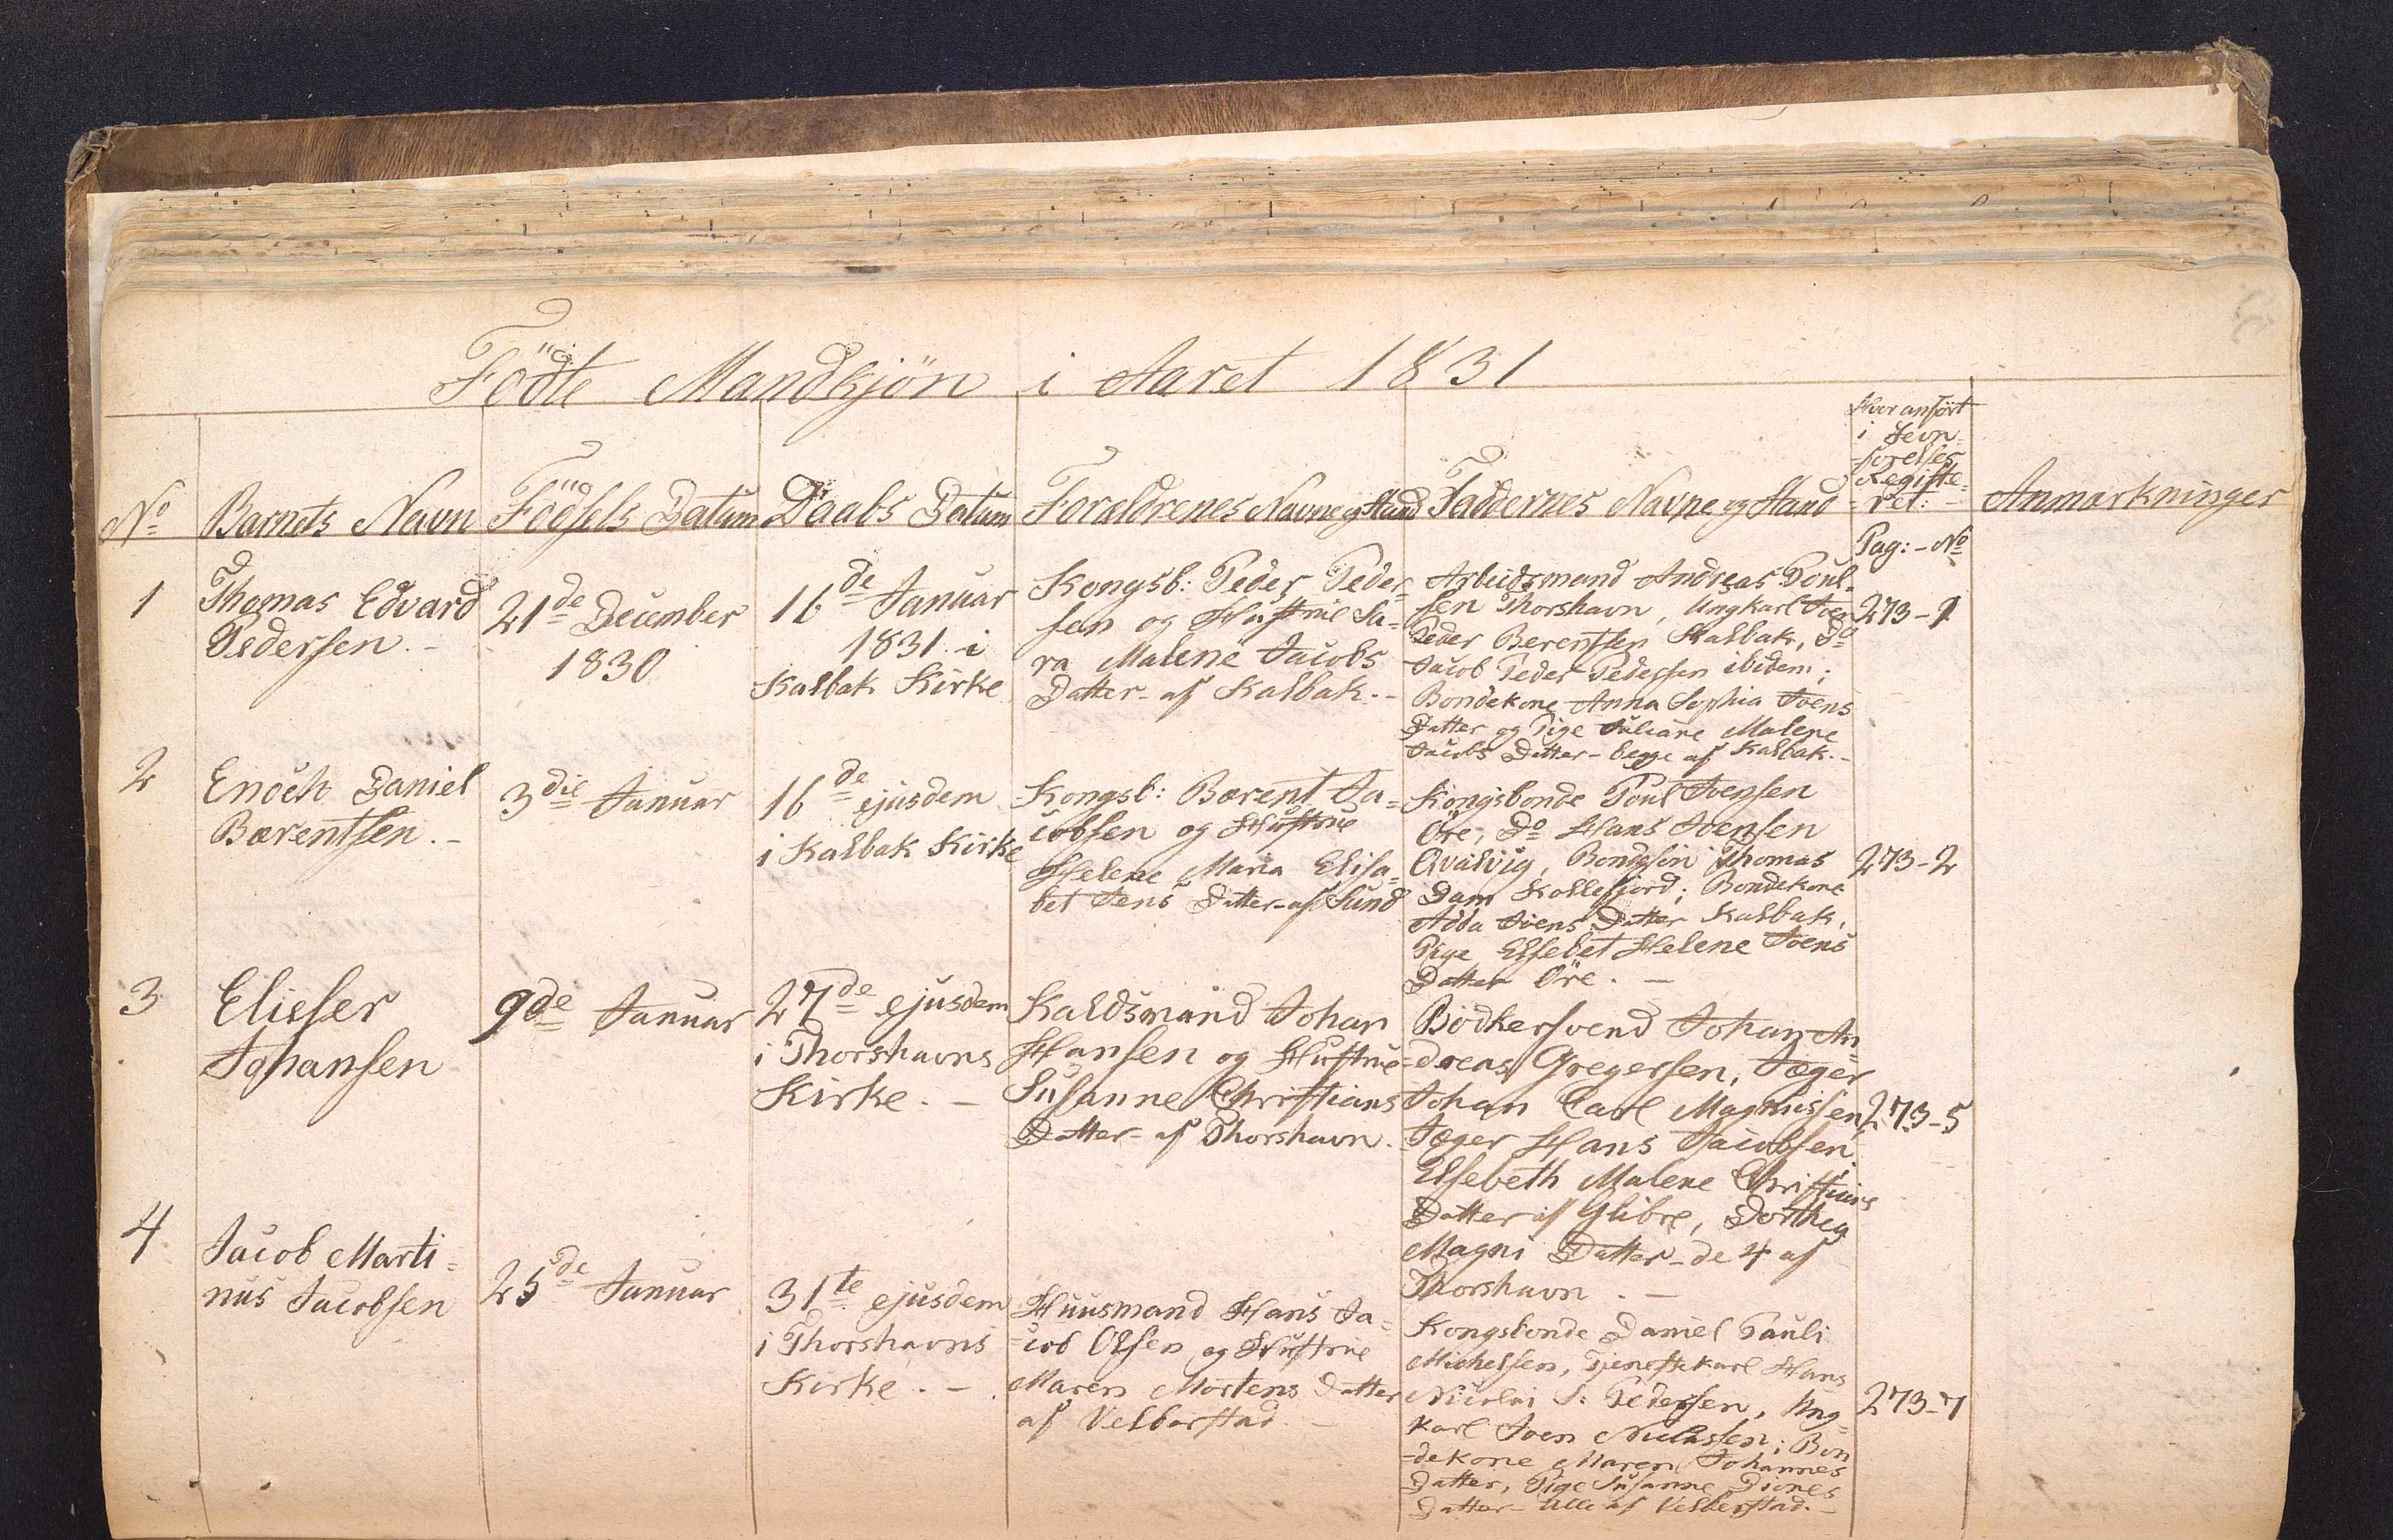 Födte Mandkjön i Aaret 1831
No
Barnets Navn
Födsels Datum
Daabs Datum
Forældrenes Navne og Stand
Faddernes Navne og Stand
Hvor anfört
i Jevn-
-förelses
Registe-
-ret:
Pag: - No
Anmærkninger
1
Thomas Edvard
Pedersen. -
21de December
1830
16de Januar
1831 i
Kalbak Kirke
Kongsb: Peder Peder-
sen og Hustrue Sa-
ra Malene Jacobs
Datter - af Kalbak. -
Arbeidsmand Andreas Poul-
sen Thorshavn, Ungkarl Joen
Peder Berentsen Kalbak, Do
Jacob Peder Pedersen ibidem;
Bondekone Anna Sophia Joens
Datter og Pige Juliane Malene
Jacobs Datter - begge af Kalbak. -
273 - 1
2
Enoch Daniel
Bærentsen. -
3die Januar
16de ejusdem
i Kalbak Kirke
Kongsb: Bærent Ja-
cobsen og Hustrue
Helene Maria Elisa-
bet Jens Datter - af Sund
Kongsbonde Poul Joensen
Öre, Do Hans Joensen
Qvalvig, Bondesön Thomas
Dam Kollefjord; Bondekone
Adda Joens Datter Kalbak,
Pige Elsebet Helene Joens
Datter Öre. -
273 - 2
3
Elieser
Johansen
9de Januar
27de ejusdem
i Thorshavns
Kirke. -
Kaldsmand Johan
Hansen og Hustrue
Susanne Christians
Datter - af Thorshavn.
Bödkersvend Johan An-
-dreas Gregersen, Jæger
Johan Carl Magnussen,
Jæger Hans Jacobsen.
Elsebeth Malene Christians
Datter af Glibre, Dorthea
Magni Datter - de 4 af
Thorshavn. -
273 - 5
4
Jacob Marti-
nus Jacobsen
25de Januar
31te ejusdem
i Thorshavns
Kirke. -
Huusmand Hans Ja-
-cob Olsen og Hustrue
Maren Mortens Datter
af Velberstad. -
Kongsbonde Daniel Pauli
Michelsen, Tjenestekarl Hans
Nicolai S: Pedersen, Ung-
karl Joen Niclassen; Bon
-dekone Maren Johannes
Datter, Pige Susanne Diones
Datter - alle af Velberstad. -
273 - 7